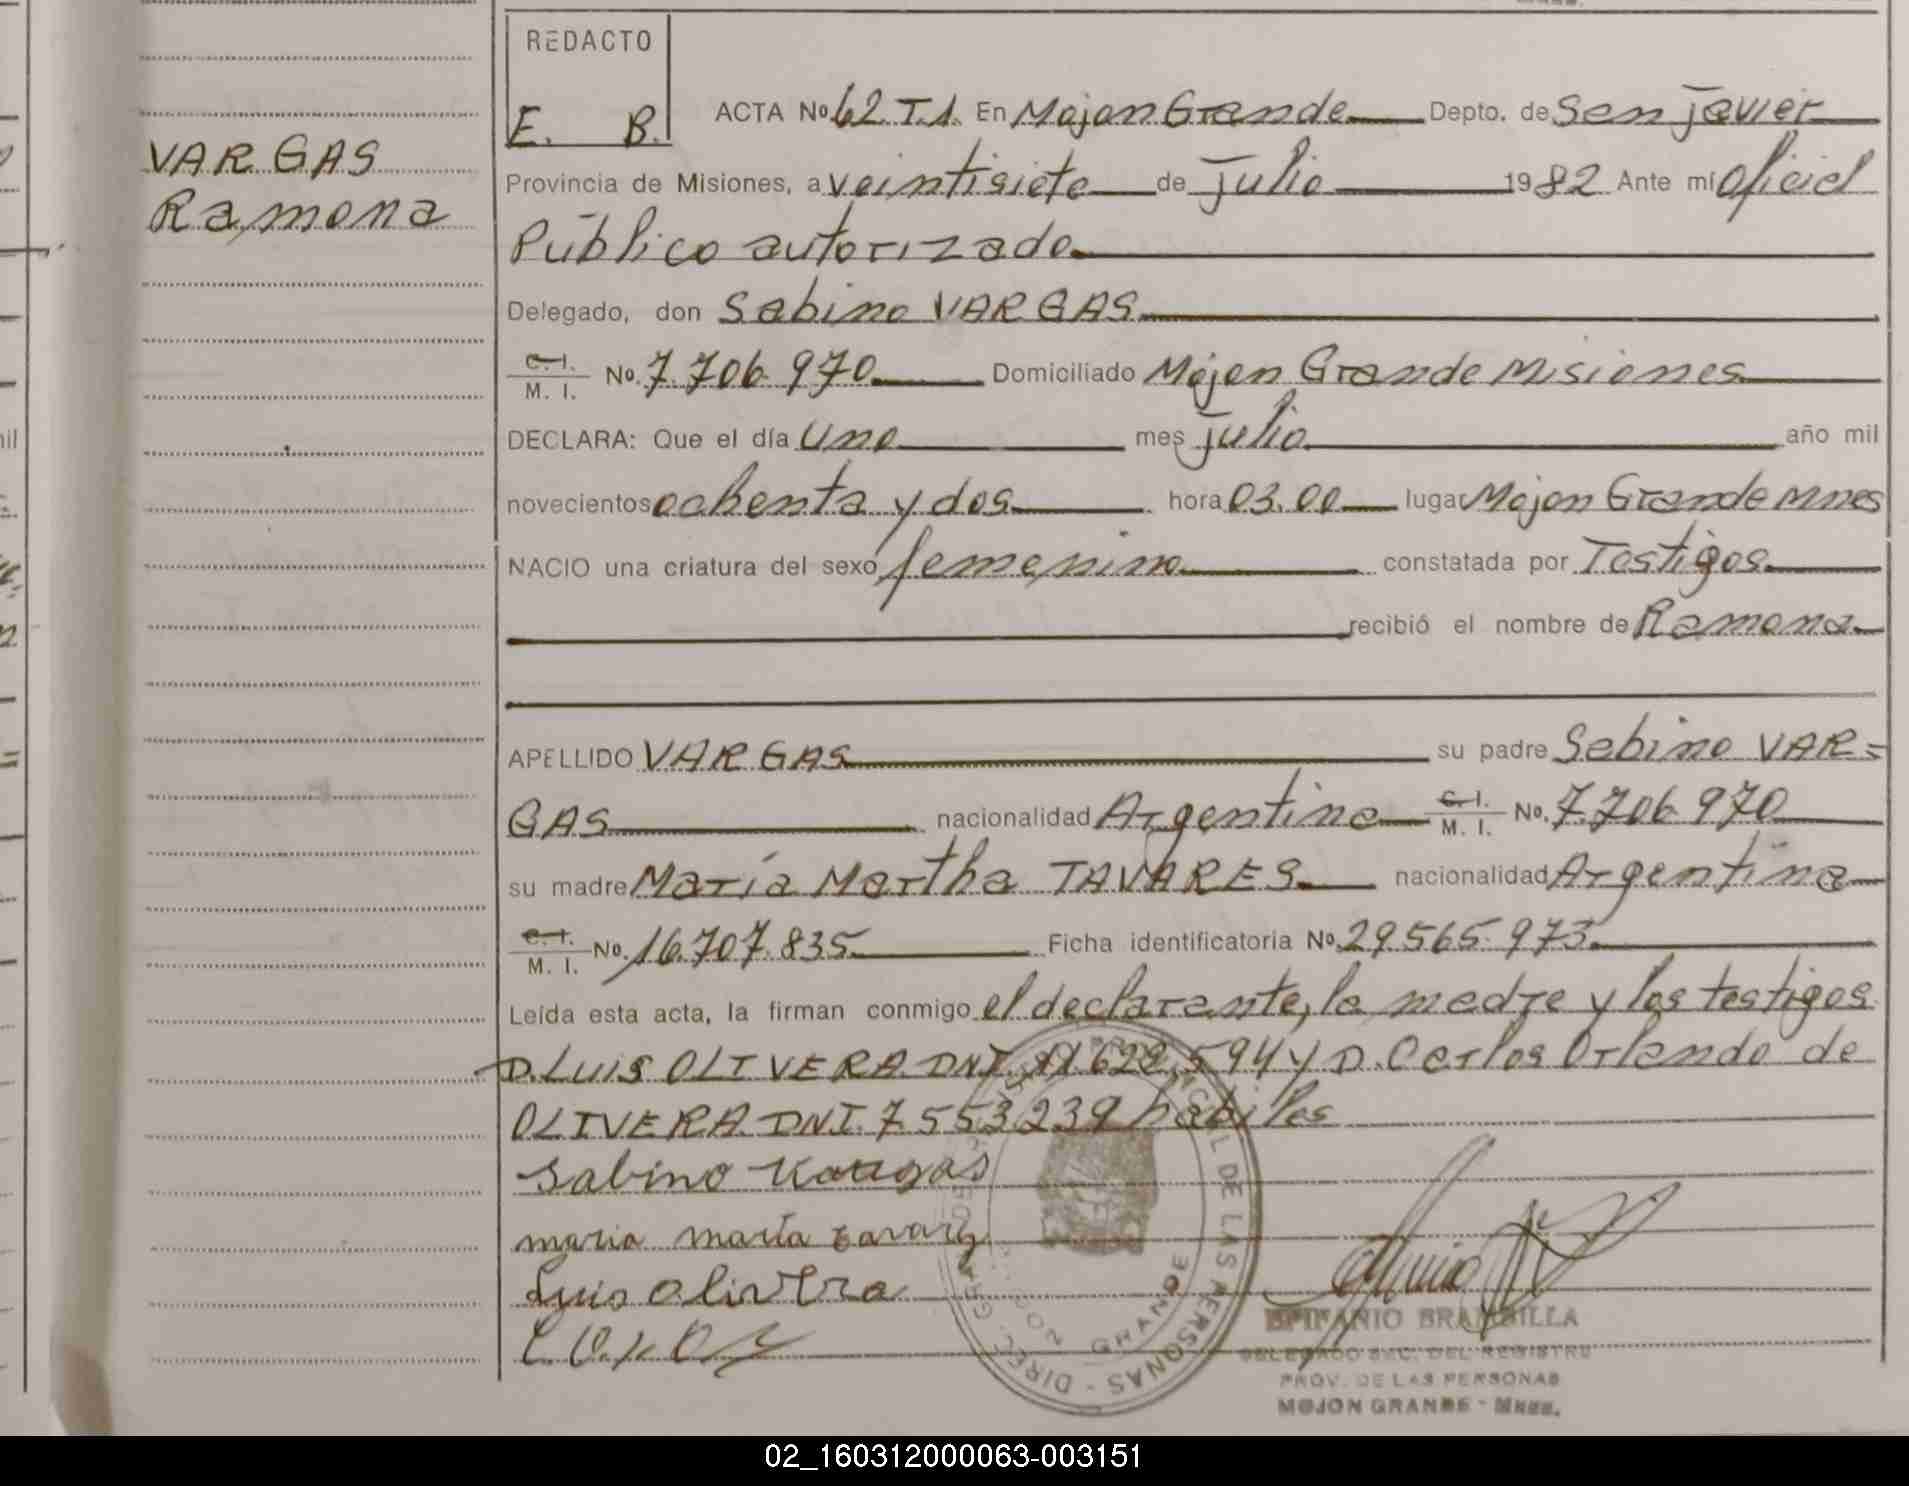 REDACTO
E. B.
VARGAS
Ramona
ACTA No 62.T.1. En Mojon Grande Depto. de San Javier
Provincia de Misiones, a veintisiete de Julio 1982 Ante mí oficial
Público autorizado
Delegado, don Sabino VARGAS
C. I. M. I. No. 7.706.970 Domiciliado Mojon Grande Misiones
DECLARA: Que el día uno mes Julio año mil
novecientos ochenta y dos hora 03.00 lugar Mojon Grande Mnes
NACIO una criatura del sexo femenino constatada por Testigos
recibió el nombre de Ramona
APELLIDO VARGAS su padre Sabino VAR=
GAS nacionalidad Argentina C. I. M. I. No. 7.706.970
su madre María Martha TAVARES nacionalidad Argentina
C. I. M. I. No. 16.707.835 Ficha identificatoria No. 29.565.973
Leída esta acta, la firman conmigo el declarante, la madre y los testigos
D. LUIS OLIVERA DNI. 11.628.594 y D. Carlos Orlando de
OLIVERA DNI. 7.553.239 habiles
Sabino Vargas
maria marta tavarez
Luis Olivera
DE LAS PERSONAS - DIREC. GRAL.
MOJON GRANDE
EPIFANIO BRAMBILLA
DELEGADO SEC. DEL REGISTRO
PROV. DE LAS PERSONAS
MOJON GRANDE - Mnes.
02_160312000063-003151